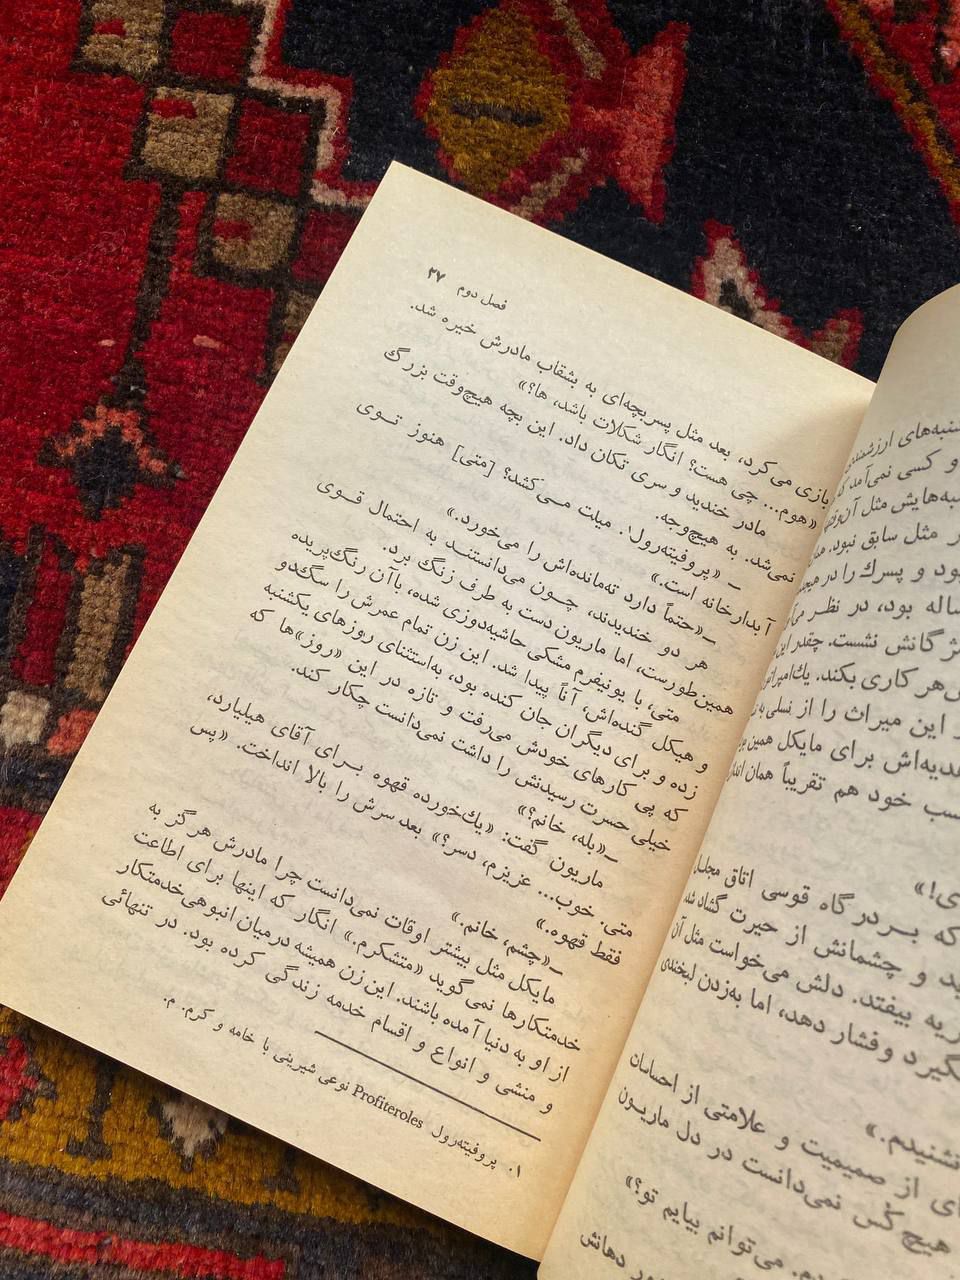 فصل دوم ۲۷
بازی می‌کرد، بعد مثل پسربچه‌ای به بشقاب مادرش خیره شد.
«هوم... چی هست؟ انگار شکلات باشد، ها؟»
مادر خندید و سری تکان داد. این بچه هیچ‌وقت بزرگ
نمی‌شد. به هیچ‌وجه.
ـ «پروفیته‌رول۱. میلت مــی‌کشد؟ [متی] هنوز تــوی
آبدارخانه است.»
ـ«حتماً دارد ته‌مانده‌اش را می‌خورد.»
هر دو خندیدند، چــون می‌دانستنــد به احتمال قــوی
همین‌طورست، اما ماریون دست به طرف زنگ برد.
متی، با یونیفرم مشکی حاشیه‌دوزی شده، با آن رنگ‌پریده
و هیکل گنده‌اش، آناً پیدا شد. این زن تمام عمرش را سگ‌دو
زده و برای دیگران جان کنده بود، به‌استثنای روزهای یکشنبه
که پی کارهای خودش می‌رفت و تازه در این «روز»ها که
خیلی حسرت رسیدنش را داشت نمی‌دانست چکار کند.
ـ«بله، خانم؟»
ماریون گفت: «یك‌خورده قهوه بــرای آقای هیلیارد،
متی. خوب... عزیزم، دسر؟» بعد سرش را بالا انداخت. «پس
فقط قهوه.»
ـ«چشم، خانم.»
مایکل مثل بیشتر اوقات نمی‌دانست چرا مادرش هرگز به
خدمتکارها نمی‌گوید «متشکرم.» انگار که اینها برای اطاعت
از او به دنیا آمده باشند. این زن همیشه درمیان انبوهی‌خدمتکار
و منشی و انواع و اقسام خدمه زندگی کرده بود. در تنهائی
۱. پروفیته‌رول Profiteroles نوعی شیرینی با خامه و کرم. م.
و کسی نمی‌آمد که
مثل سابق نبود.
بود و پسرك را در
ساله بود، در نظــر
گانش نشست. چقدر این
هر کاری بکند.
این میراث را از نسلی به
هدیه‌اش برای مایکل همین
خود هم تقریباً همان
که بــردر گاه قوسی اتاق
و چشمانش از حیرت گشاد شد.
بیفتد. دلش می‌خواست مثل آن
وفشار دهد، اما به‌زدن لبخندی
از صمیمیت و علامتی از احساسات
هیچ کس نمی‌دانست در دل ماریون
می‌توانم بیایم تو؟»
دهانش